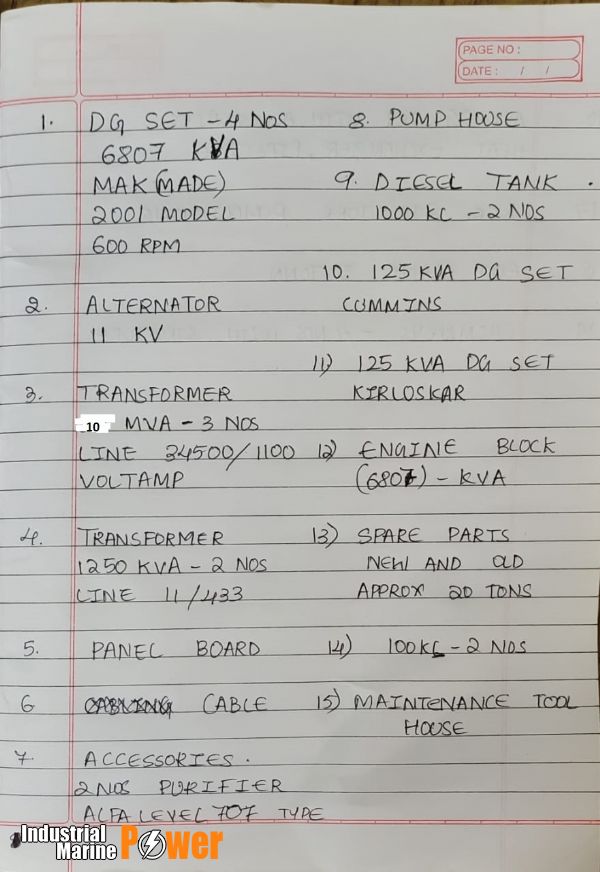 PAGE NO :
DATE : / /
1. DG SET - 4 NOS
6807 KVA
MAK (MADE)
2001 MODEL
600 RPM
2. ALTERNATOR
11 KV
3. TRANSFORMER
10 MVA - 3 NOS
LINE 34500/1100
VOLTAMP
4. TRANSFORMER
1250 KVA - 2 NOS
LINE 11/433
5. PANEL BOARD
6 CABLE
7. ACCESSORIES.
2 NOS PURIFIER
ALFA LEVEL 707 TYPE
8. PUMP HOUSE
9. DIESEL TANK .
1000 KL - 2 NOS
10. 125 KVA DG SET
CUMMINS
11) 125 KVA DG SET
KIRLOSKAR
12) ENGINE BLOCK
(6807) - KVA
13) SPARE PARTS
NEW AND OLD
APPROX 20 TONS
14) 100KL - 2 NOS
15) MAINTENANCE TOOL
HOUSE
Industrial
Marine Power